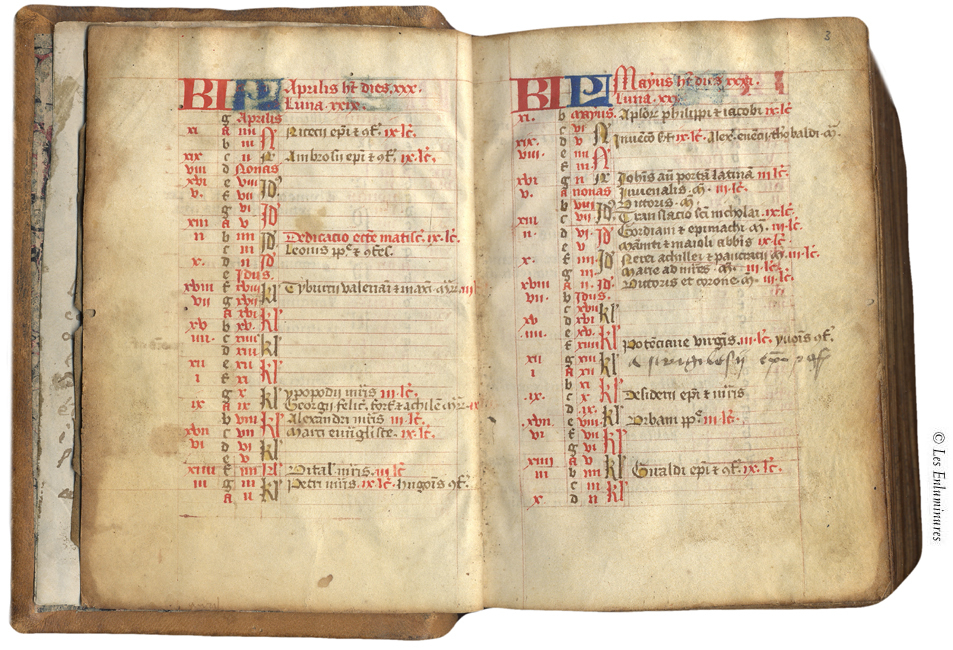 KL Aprilis ht dies.xxx.
Luna.xxix.
g Aprilis
xi A iiii N Nicecii epi et 9f. ix.lc.
b iii N
xix c ii N Ambrosii epi et 9f. ix.lc.
viii d Nonas
xvi e viii Id
v. f vii
g vi Id
xiii A v
ii b iiii Id Dedicacio eccle matisc. ix.lc.
c iii Leonis pp et 9fes.
x. d ii Id
e Idus.
xviii f xviii kl Tyburcii valeriani et maxi. mr. iii
vii g xvii
A xvi kl
xv b xv.
iiii. c xiiii kl
d xiii
xii e xii kl
i f xi
g x kl ypopodii mris iii.lc.
ix A ix Georgii felic. fort. et achile mr. ix
b viii kl Alexandri mris iii.lc.
xvii c vii Marci evvgliste. ix.lc.
vi d vi kl
e v
xiiii f iiii kl Vital mris. iii lc
iii g iii kl Petri mris. ix.lc. hugois 9f.
A ii
3
KL Mayus ht dies xxxi.
Luna.xxx
xi. b mayus. Aplor philippi et iacobi ix.lc
c vi N
xix. d v Invencio s. ix.lc. Alex. evencii thobaldi m.
viii. e iiii N
f iii
xvi g ii Iohis an porta latina iii.lc.
v. A nonas Iuvenalis. m. iii.lc.
b viii Id Victoris. m.
xiii c vii Translacio sci nicholai. ix.lc.
ii. d vi Id Gordiani et epimachi. m. iii.lc.
e v Mamti et maioli abbis ix.lc.
x. f iiii Id Nerei achillei et pancracii m. iii.lc.
g iii Marie ad mres. iii.lc.
xviii A ii. Id Victoris et corone. m. iii.lc
vii. b Idus.
c xvii kl
xv d xvi
iiii. e xv. kl
f xiiii Potenciane virgis. iii.lc. yvois 9f.
xii g xiii kl
i A xii
b xi kl
ix. c x Desiderii epi et mris
d ix. kl
xvii. e viii Urbani pp. iii.lc.
vi f vii kl
g vi
xiiii A v kl
iii b iiii Giraldi epi et 9f. ix.lc.
c iii kl
x. d ii
© Les Enluminures